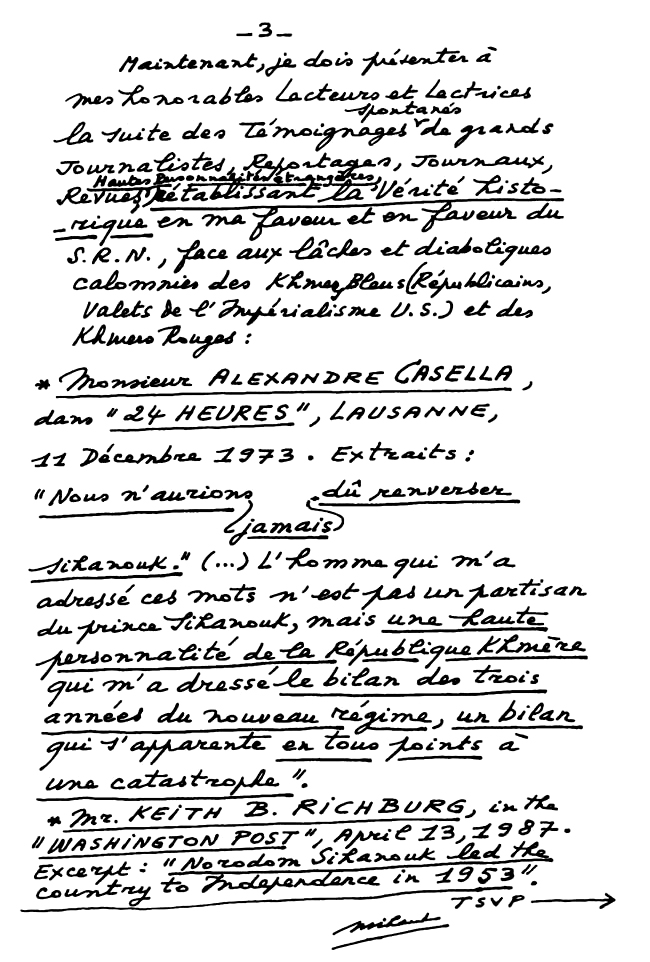 -3-
Maintenant, je dois présenter à
mes honorables Lecteurs et Lectrices
spontanés
la suite des Témoignages de grands
Journalistes, Reportages, Journaux,
Hautes Personnalités étrangères,
Revues, rétablissant la Vérité histo-
-rique en ma faveur et en faveur du
S.R.N., face aux lâches et diaboliques
calomnies des Khmers Bleus (Républicains,
Valets de l'Impérialisme U.S.) et des
Khmers Rouges :
* Monsieur ALEXANDRE CASELLA,
dans "24 HEURES", LAUSANNE,
11 Décembre 1973. Extraits :
"Nous n'aurions dû renverser
jamais
Sihanouk." (...) L'homme qui m'a
adressé ces mots n'est pas un partisan
du prince Sihanouk, mais une haute
personnalité de la République Khmère
qui m'a dressé le bilan des trois
années du nouveau régime, un bilan
qui s'apparente en tous points à
une catastrophe".
* Mr. KEITH B. RICHBURG, in the
"WASHINGTON POST", April 13, 1987.
Excerpt : "Norodom Sihanouk led the
country to Independence in 1953".
TSVP